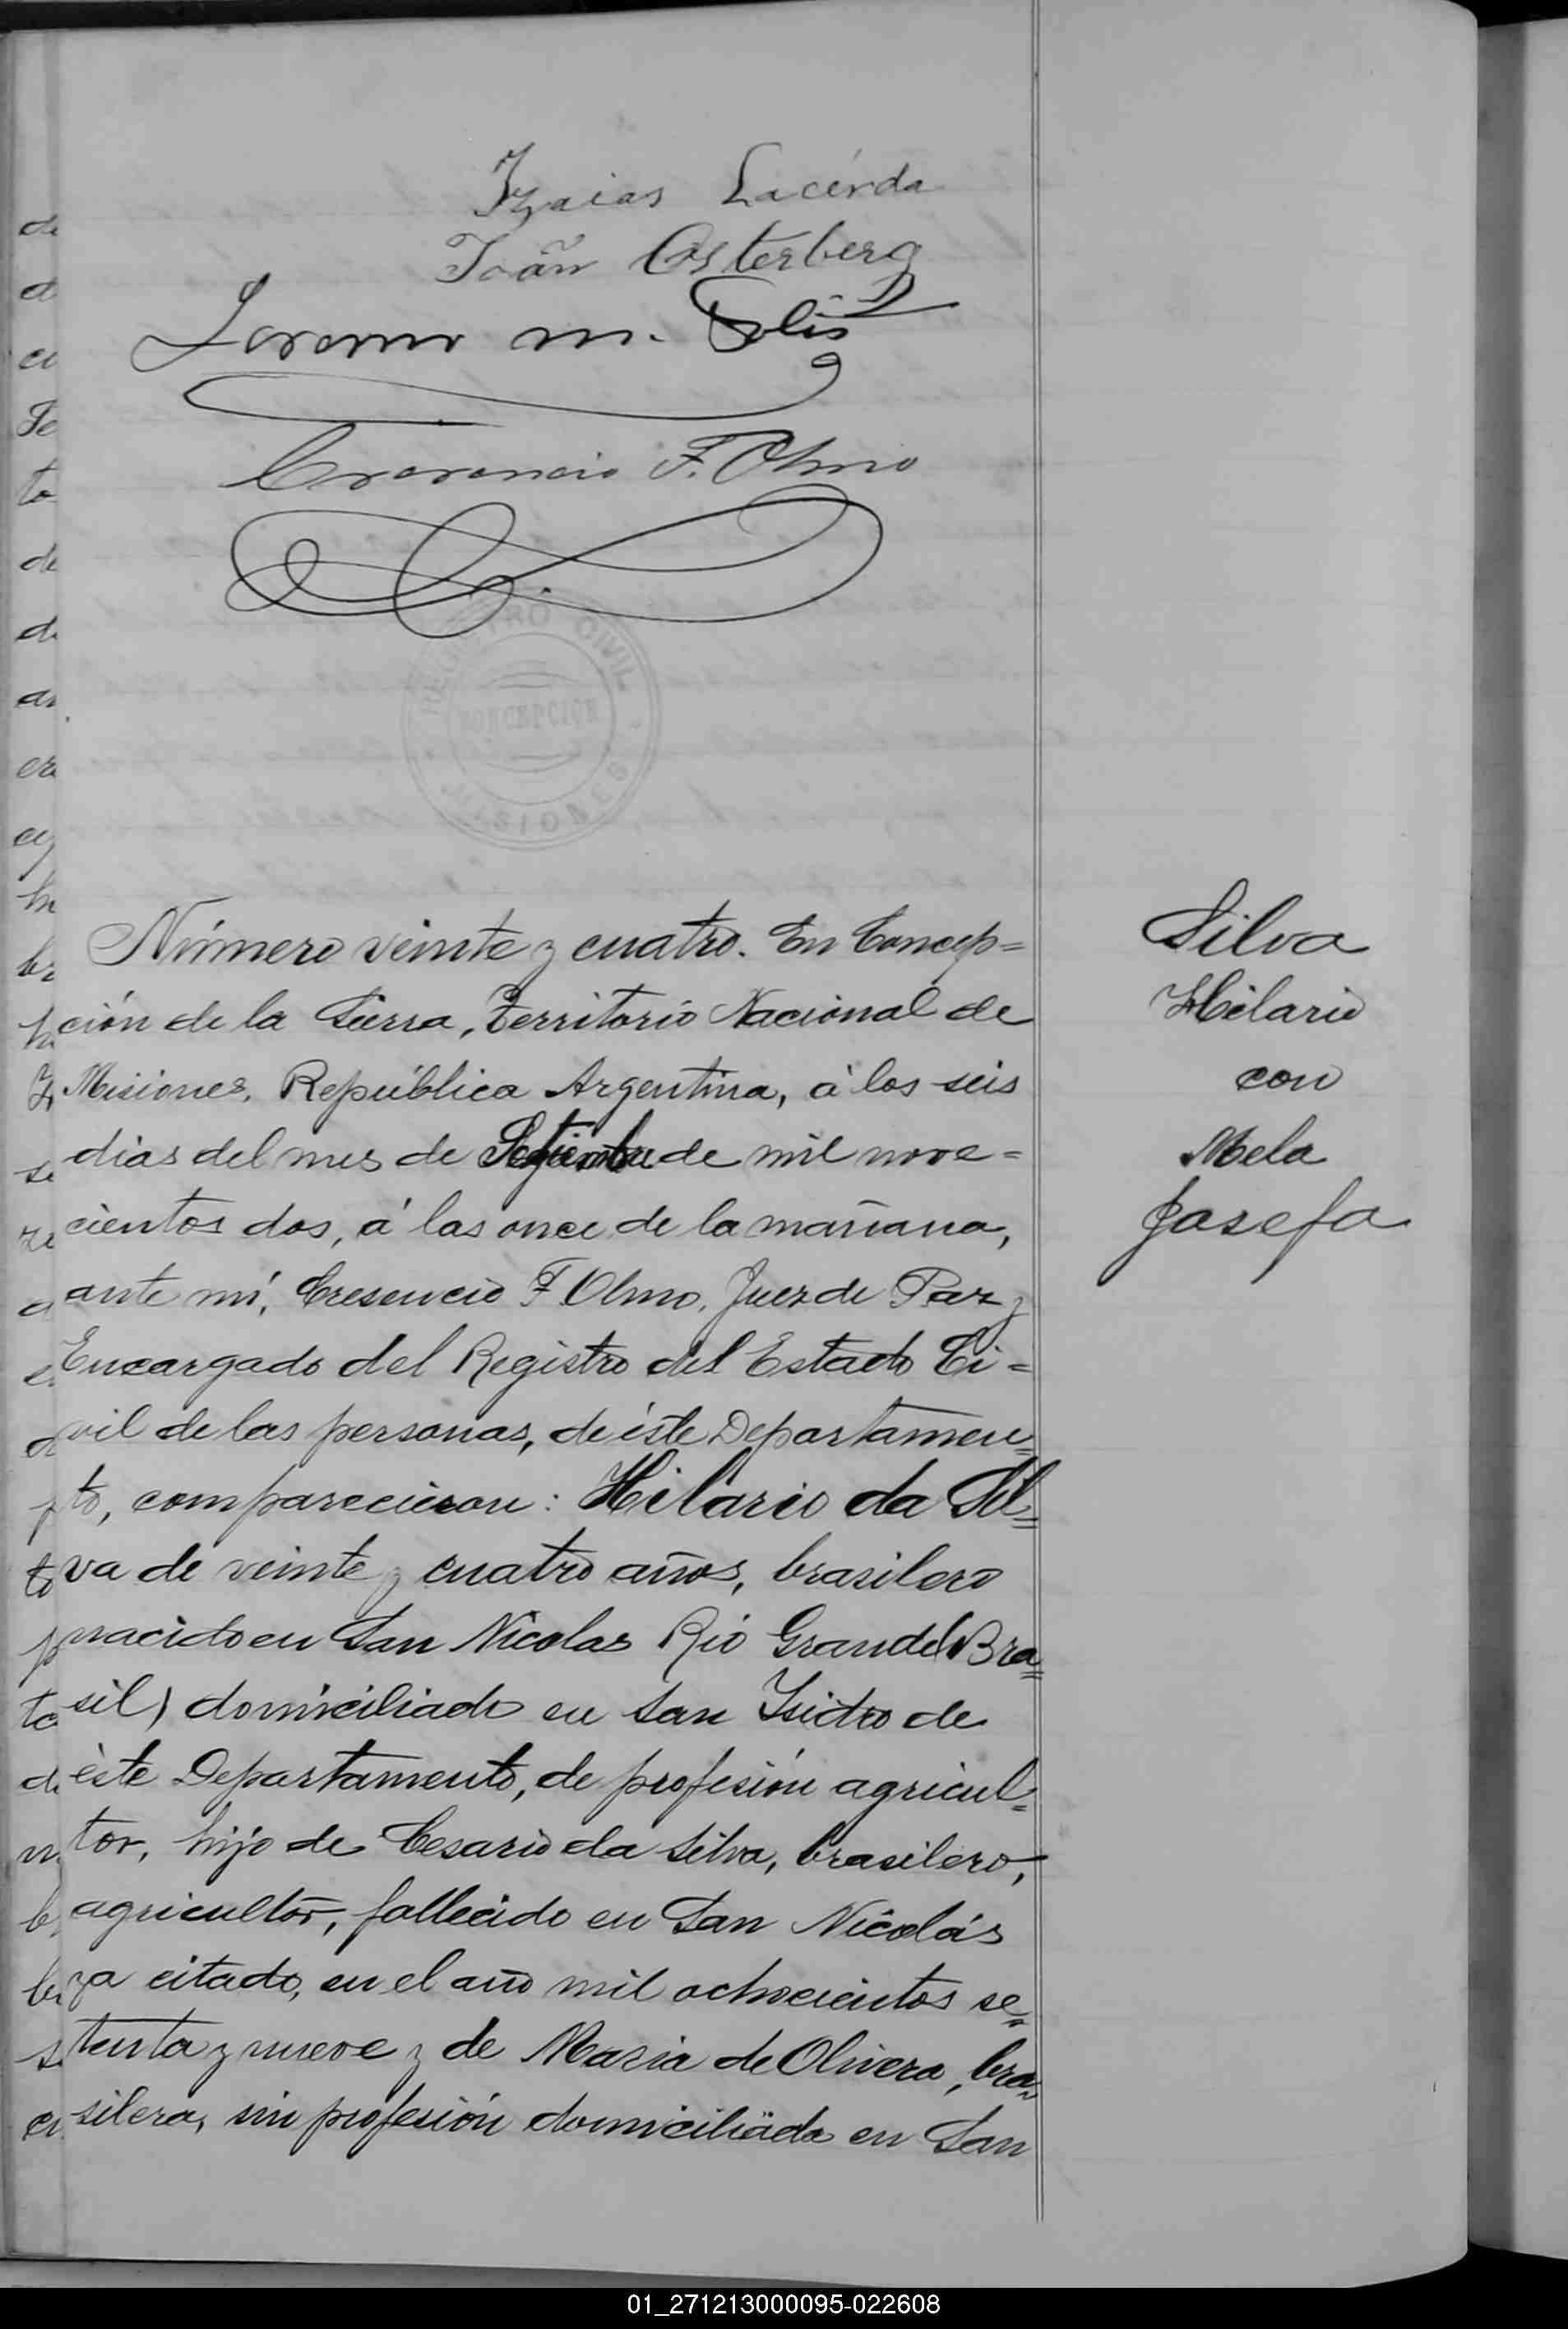 Izaias Lacerda
Joãn Osterberg
m. Solis
Cresencio F. Olmo
REGISTRO CIVIL
CONCEPCION
MISIONES
Número veinte y cuatro. En Concep=
ción de la Sierra, Territorio Nacional de
Misiones, República Argentina, á los seis
dias del mes de Setiembre de mil nove=
cientos dos, á las once de la mañana,
ante mí, Cresencio F Olmo, Juez de Paz y
Encargado del Registro del Estado Ci=
vil de las personas, de éste Departamen=
to, comparecieron: Hilario da Sil=
va de veinte y cuatro años, brasilero
nacido en San Nicolas Rio Grande (Bra=
sil) domiciliado en San Isidro de
éste Departamento, de profesión agricul=
tor, hijo de Cesario da Silva, brasilero,
agricultor, fallecido en San Nicolás
ya citado, en el año mil ochocientos se=
tenta y nueve y de Maria de Olivera, bra=
silera, sin profesión domiciliada en San
Silva
Hilario
con
Mela
Josefa
01_271213000095-022608